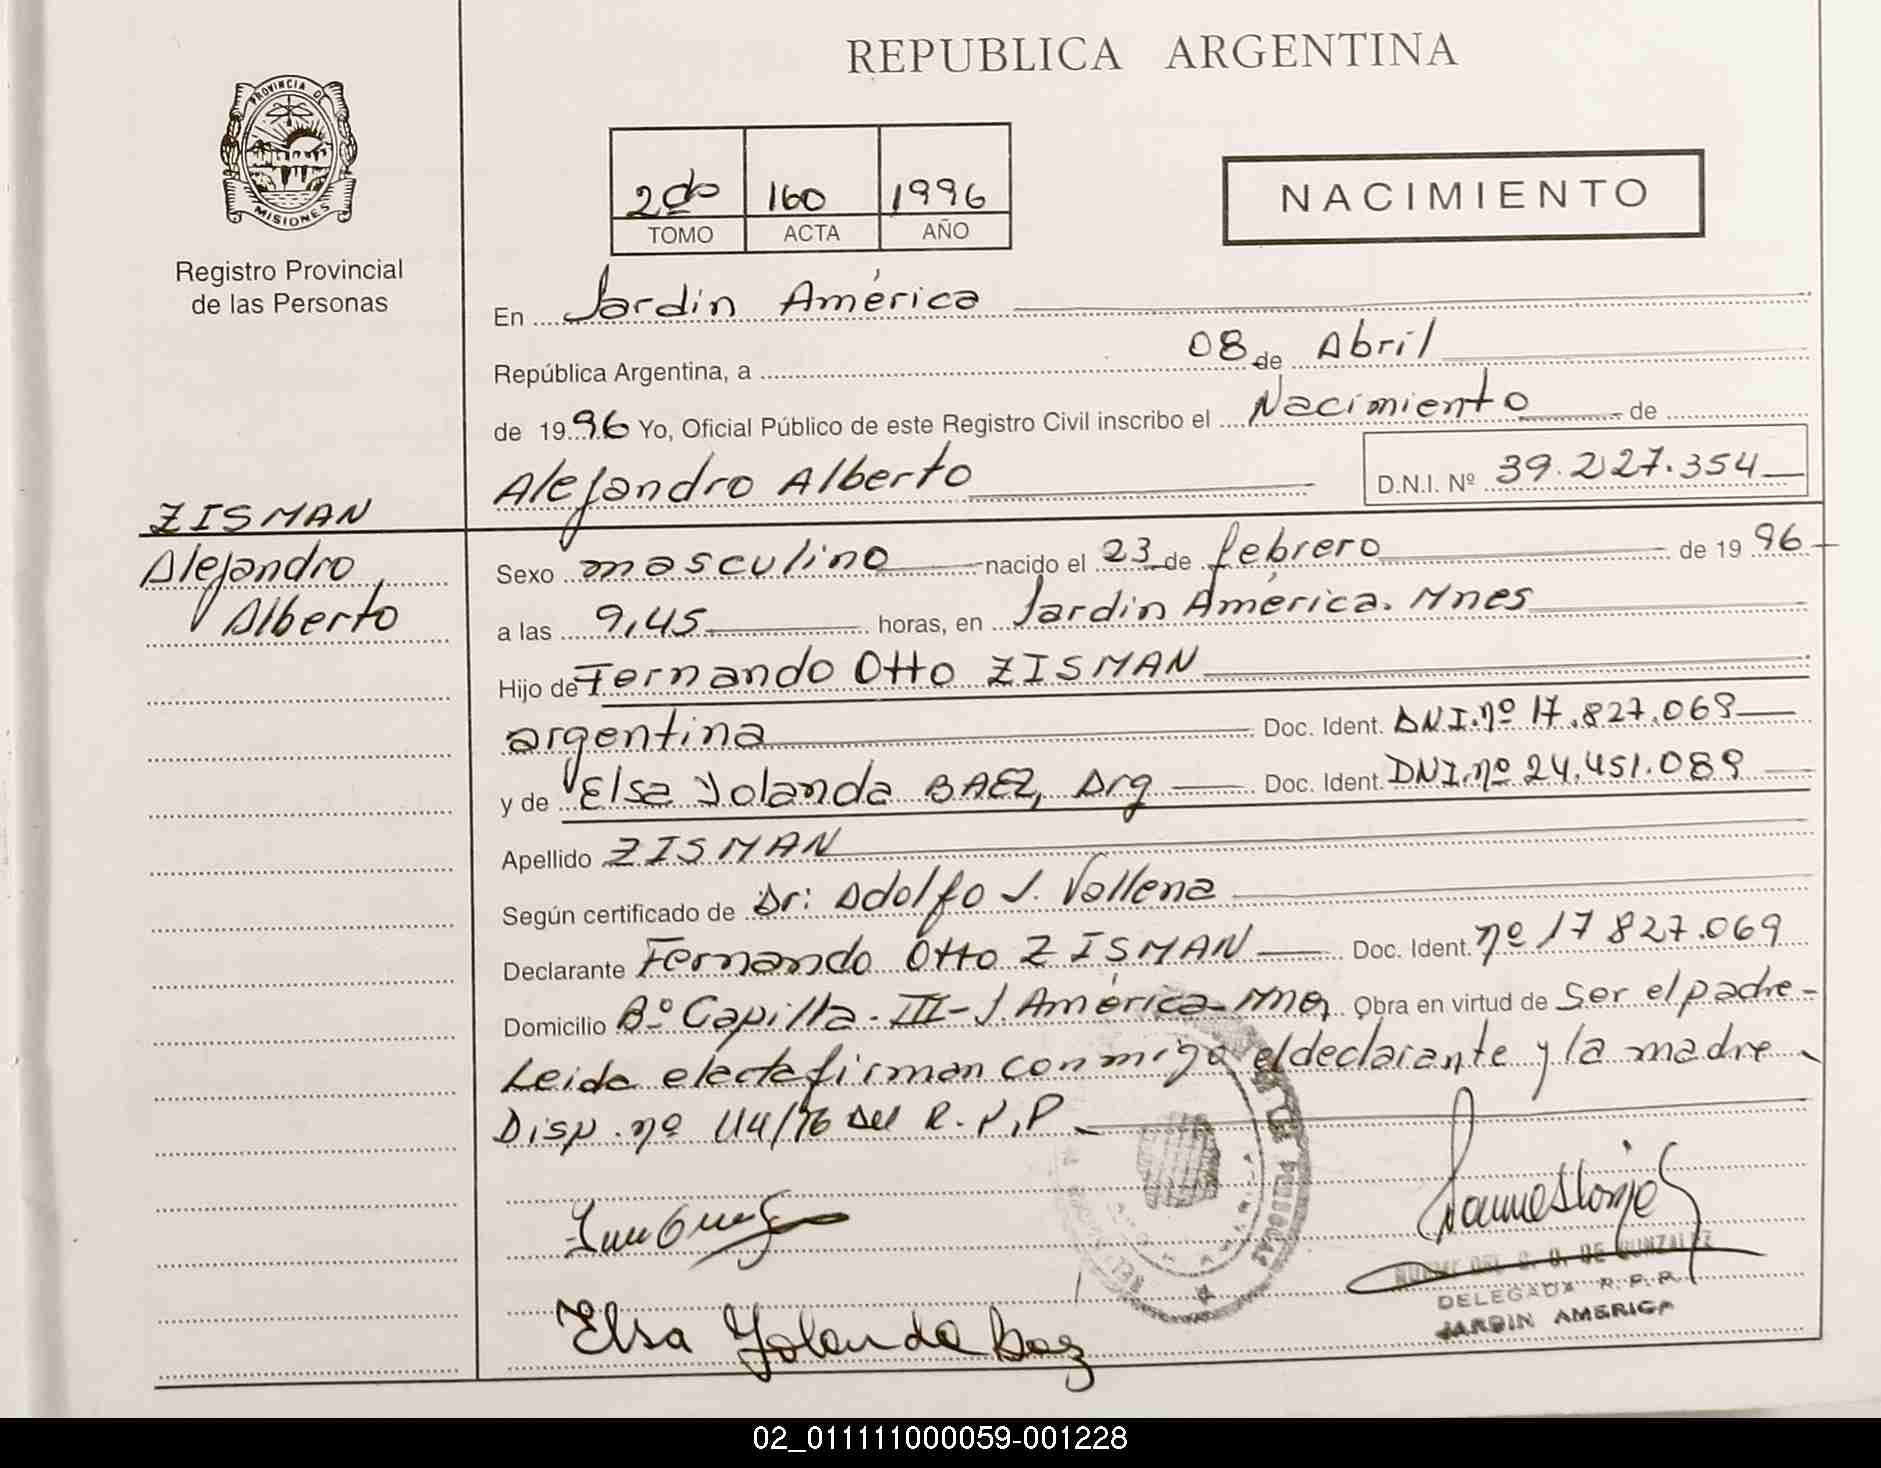 REPUBLICA ARGENTINA
PROVINCIA DE
MISIONES
Registro Provincial
de las Personas
2do 160 1996
TOMO ACTA AÑO
NACIMIENTO
En Jardin América
República Argentina, a 08 de Abril
de 1996 Yo, Oficial Público de este Registro Civil inscribo el Nacimiento de
Alejandro Alberto D.N.I. Nº 39.227.354
ZISMAN
Alejandro
Alberto
Sexo masculino nacido el 23 de febrero de 1996
a las 9,45 horas, en Jardin América. Mnes
Hijo de Fernando Otto ZISMAN
argentina Doc. Ident. DNI.nº 17.827.069
y de Elsa Yolanda BAEZ, Arg Doc. Ident. DNI.nº 24.451.089
Apellido ZISMAN
Según certificado de Dr: Adolfo J. Vallena
Declarante Fernando Otto ZISMAN Doc. Ident. nº 17 827.069
Domicilio Bº Capilla. III - J. América - Mnes Obra en virtud de Ser el padre -
Leida el acta firman conmigo el declarante y la madre
Disp. nº 114/76 del R.P.P
DE GONZALEZ
DELEGADA R.P.P.
JARDIN AMERICA
Elsa Yolanda Baez
02_011111000059-001228